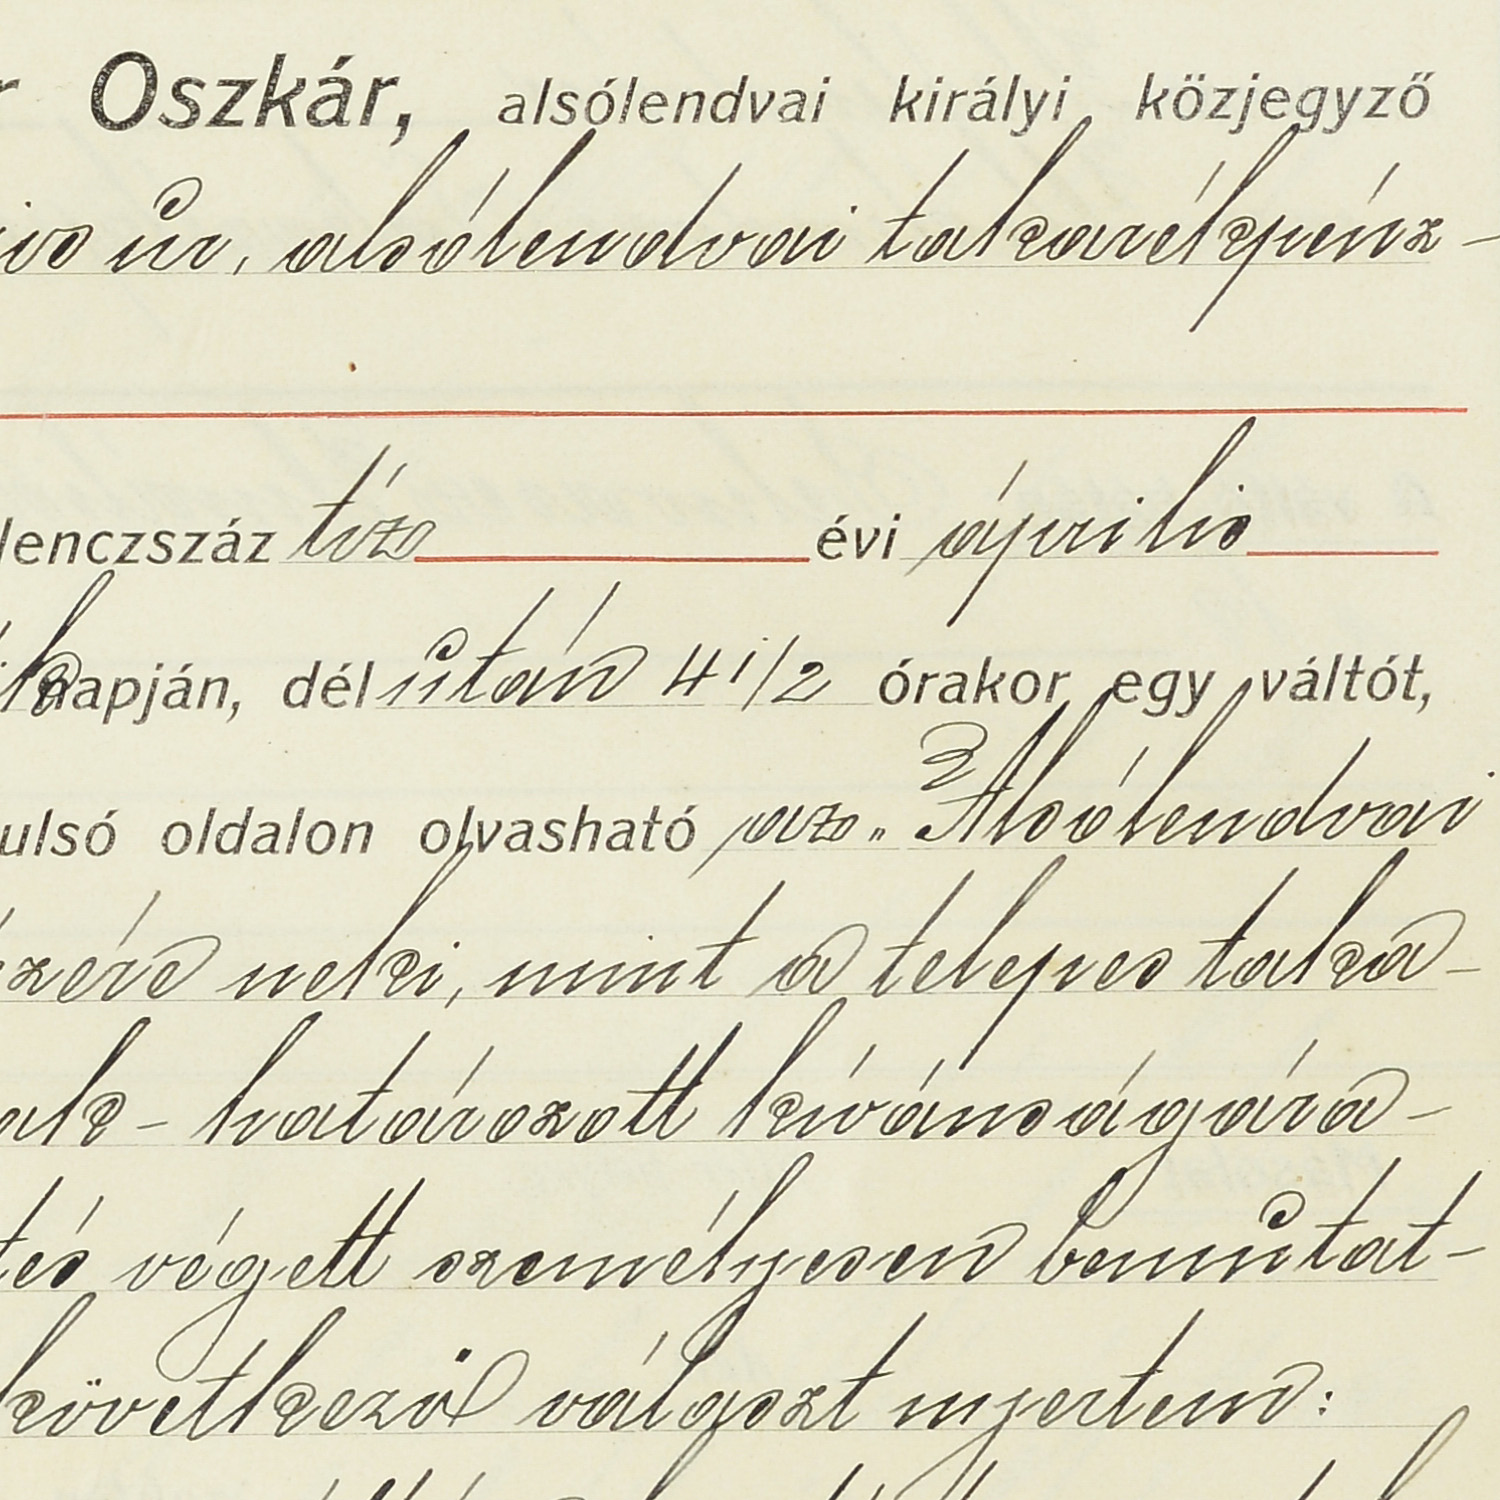 Oszkár, alsólendvai királyi közjegyző
úr, alsólendvai takarékpénz-
lenczszáz tíz évi április
napján, délután 4 1/2 órakor egy váltót,
ulsó oldalon olvasható az „Alsólendvai
zére neki, mint a telepes taka-
ak - határozott kívánságára -
tés végett személyesen bemutat-
következő választ nyertem: